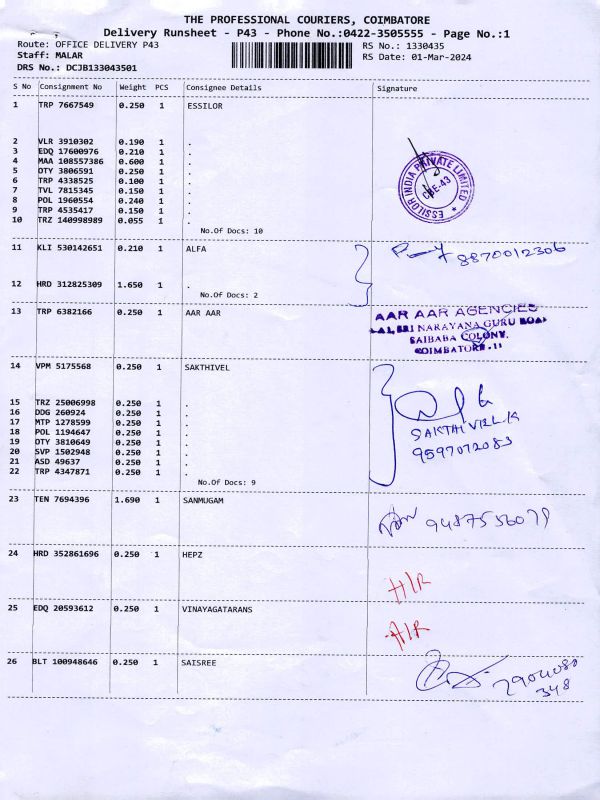 THE PROFESSIONAL COURIERS, COIMBATORE
Delivery Runsheet - P43 - Phone No.:0422-3505555 - Page No.:1
Route: OFFICE DELIVERY P43 RS No.: 1330435
Staff: MALAR RS Date: 01-Mar-2024
DRS No.: DCJB133043501
S No Consignment No Weight PCS Consignee Details Signature
1 TRP 7667549 0.250 1 ESSILOR
2 VLR 3910302 0.190 1 .
3 EDQ 17600976 0.210 1 .
4 MAA 108557386 0.600 1 .
5 OTY 3806591 0.250 1 .
6 TRP 4338525 0.100 1 .
7 TVL 7815345 0.150 1 .
8 POL 1960554 0.240 1 .
9 TRP 4535417 0.150 1 .
10 TRZ 140998989 0.055 1 .
No.Of Docs: 10
ESSILOR INDIA PRIVATE LIMITED
CBE-43
11 KLI 530142651 0.210 1 ALFA
8870012306
12 HRD 312825309 1.650 1 .
No.Of Docs: 2
13 TRP 6382166 0.250 1 AAR AAR
AAR AAR AGENCIES
SRI NARAYANA GURU ROAD
SAIBABA COLONY,
COIMBATORE-11
14 VPM 5175568 0.250 1 SAKTHIVEL
15 TRZ 25006998 0.250 1 .
16 DDG 260924 0.250 1 .
17 MTP 1278599 0.250 1 .
18 POL 1194647 0.250 1 .
19 OTY 3810649 0.250 1 .
20 SVP 1502948 0.250 1 .
21 ASD 49637 0.250 1 .
22 TRP 4347871 0.250 1 .
No.Of Docs: 9
SAKTHIVEL.K
9597072083
23 TEN 7694396 1.690 1 SANMUGAM
24 HRD 352861696 0.250 1 HEPZ
H/R
25 EDQ 20593612 0.250 1 VINAYAGATARANS
A/R
26 BLT 100948646 0.250 1 SAISREE
348